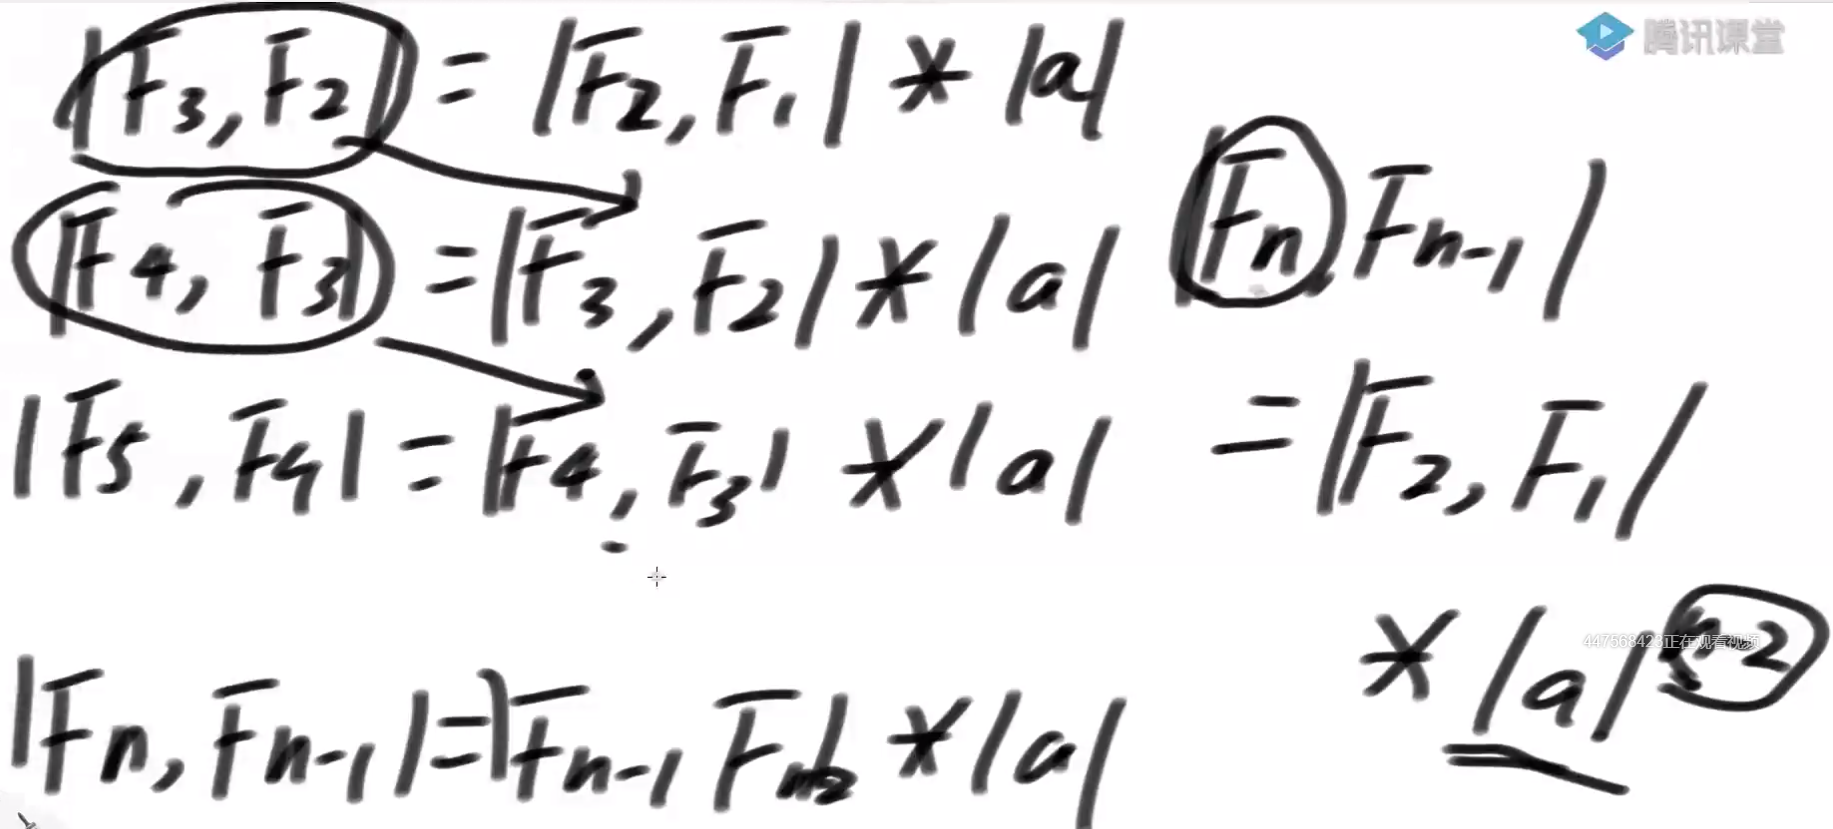 腾讯课堂
|F3, F2| = |F2, F1| * |a|
|F4, F3| = |F3, F2| * |a|
|F5, F4| = |F4, F3| * |a|
|Fn, Fn-1| = |Fn-1 Fn-2| * |a|
|Fn, Fn-1|
= |F2, F1|
* |a| n-2
447568423正在观看视频